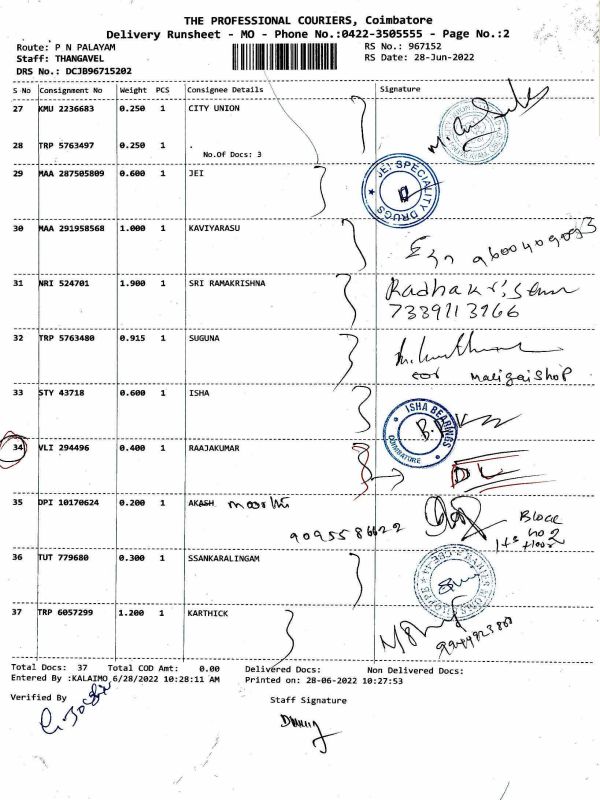 THE PROFESSIONAL COURIERS, Coimbatore
Delivery Runsheet - MO - Phone No.:0422-3505555 - Page No.:2
Route: P N PALAYAM RS No.: 967152
Staff: THANGAVEL RS Date: 28-Jun-2022
DRS No.: DCJB96715202
S No Consignment No Weight PCS Consignee Details Signature
27 KMU 2236683 0.250 1 CITY UNION
28 TRP 5763497 0.250 1 .
No.Of Docs: 3
29 MAA 287505809 0.600 1 JEI
JEI SPECIALITY DRUGS
30 MAA 291958568 1.000 1 KAVIYARASU
9600409093
31 NRI 524701 1.900 1 SRI RAMAKRISHNA
7339113966
32 TRP 5763480 0.915 1 SUGUNA
maligaishop
33 STY 43718 0.600 1 ISHA
ISHA BEARINGS
COIMBATORE
34 VLI 294496 0.400 1 RAAJAKUMAR
DL
35 DPI 10170624 0.200 1 AKASH moorthi
9095586622
Block
no 2
1st floor
36 TUT 779680 0.300 1 SSANKARALINGAM
37 TRP 6057299 1.200 1 KARTHICK
Total Docs: 37 Total COD Amt: 0.00 Delivered Docs: Non Delivered Docs:
Entered By :KALAIMO 6/28/2022 10:28:11 AM Printed on: 28-06-2022 10:27:53
Verified By Staff Signature